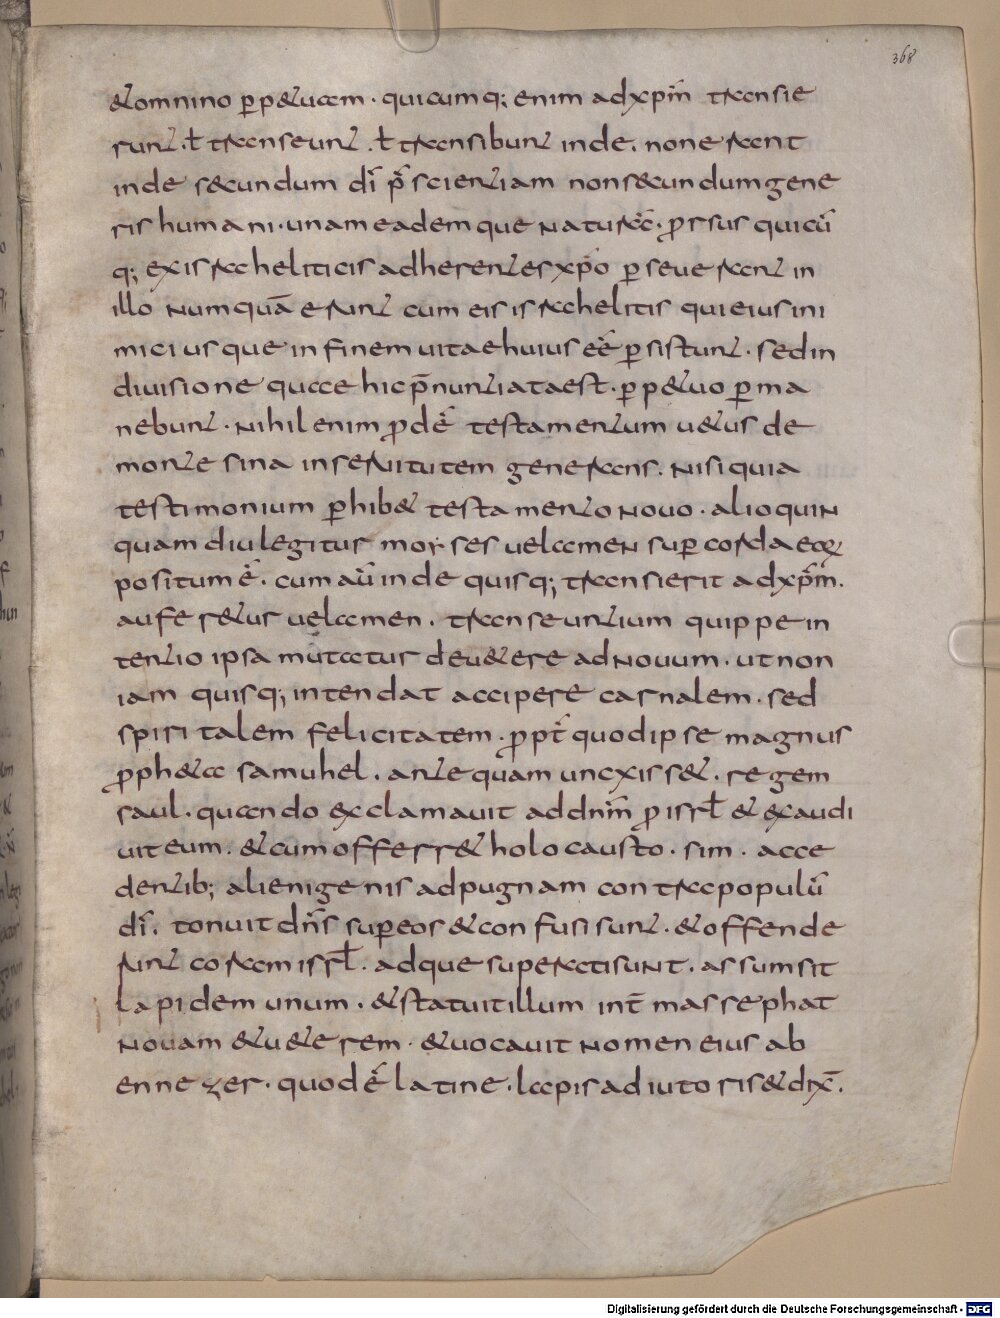 368
&omnino ꝑp&uam · quicumq; enim adxpm̄ transie
runt · ł transeunt · ł transibunt inde. non erant
inde secundum dī p̄scientiam non secundum gene
ris humani · unam eademque naturā · ꝓrsus quicū
q; ex israheliticis adherentes xp̄o ꝑseuerant in
illo numquā erunt cum eis israhelitis qui eius ini
mici usque in finem uitae huius eē ꝑsistunt · sed in
diuisione quae hic p̄nuntiata est · ꝑp&uo ꝑma
nebunt · nihil enim ꝓdē testamentum u&us de
monte sina in seruitutem generans. nisi quia
testimonium ꝑhib& testamento nouo · alioquin
quamdiu legitur moyses uelamen suꝑ corda eoꝝ
positum ē. cum aū inde quisq; transierit adxpm̄.
aufer&ur uelamen. transeuntium quippe in
tentio ipsa mutatur de u&ere ad nouum · ut non
iam quisq; intendat accipere carnalem · sed
spiritalem felicitatem · ꝓpt̄ quod ipse magnus
ꝓph&a samuhel. antequam unxiss&. regem
saul · quando exclamauit ad dnm̄ ꝓ isrł & exaudi
uit eum. & cum offerr& holocausto · sim · acce
dentib; alienigenis ad pugnam contra populū
dī. tonuit dn̄s suꝑ eos & confusi sunt · & offende
runt coram isrł. adque superati sunt. assumsit
lapidem unum · & statuit illum int̄ massephat
nouam & u&erem · & uocauit nomen eius ab
ennezer · quod ē latine · lapis adiutoris & dix̄.
Digitalisierung gefördert durch die Deutsche Forschungsgemeinschaft - DFG